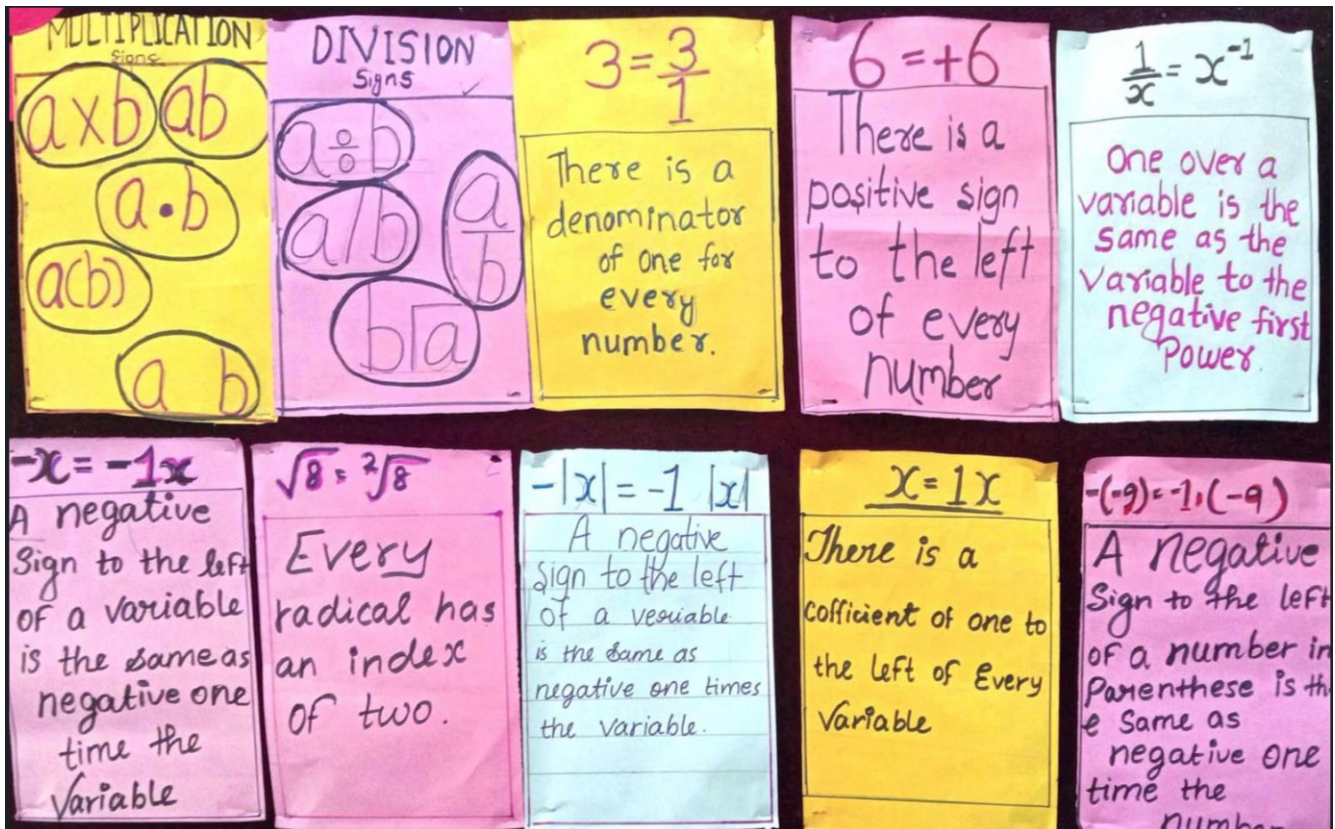 MULTIPLICATION
Signs
a x b
ab
a • b
a(b)
a b
DIVISION
Signs
a ÷ b
a/b
a
b
b√a
3 = 3/1
There is a
denominator
of one for
every
number.
6 = +6
There is a
positive sign
to the left
of every
number
1/x = x⁻¹
One over a
variable is the
same as the
variable to the
negative first
Power.
-x = -1x
A negative
Sign to the left
of a variable
is the same as
negative one
time the
Variable
√8 = ²√8
Every
radical has
an index
of two.
-|x| = -1 |x|
A negative
sign to the left
of a veriable
is the same as
negative one times
the variable.
x = 1x
There is a
cofficient of one to
the left of Every
Variable
-(-9) = -1.(-9)
A negative
Sign to the left
of a number in
Parenthese is th
e Same as
negative one
time the
number